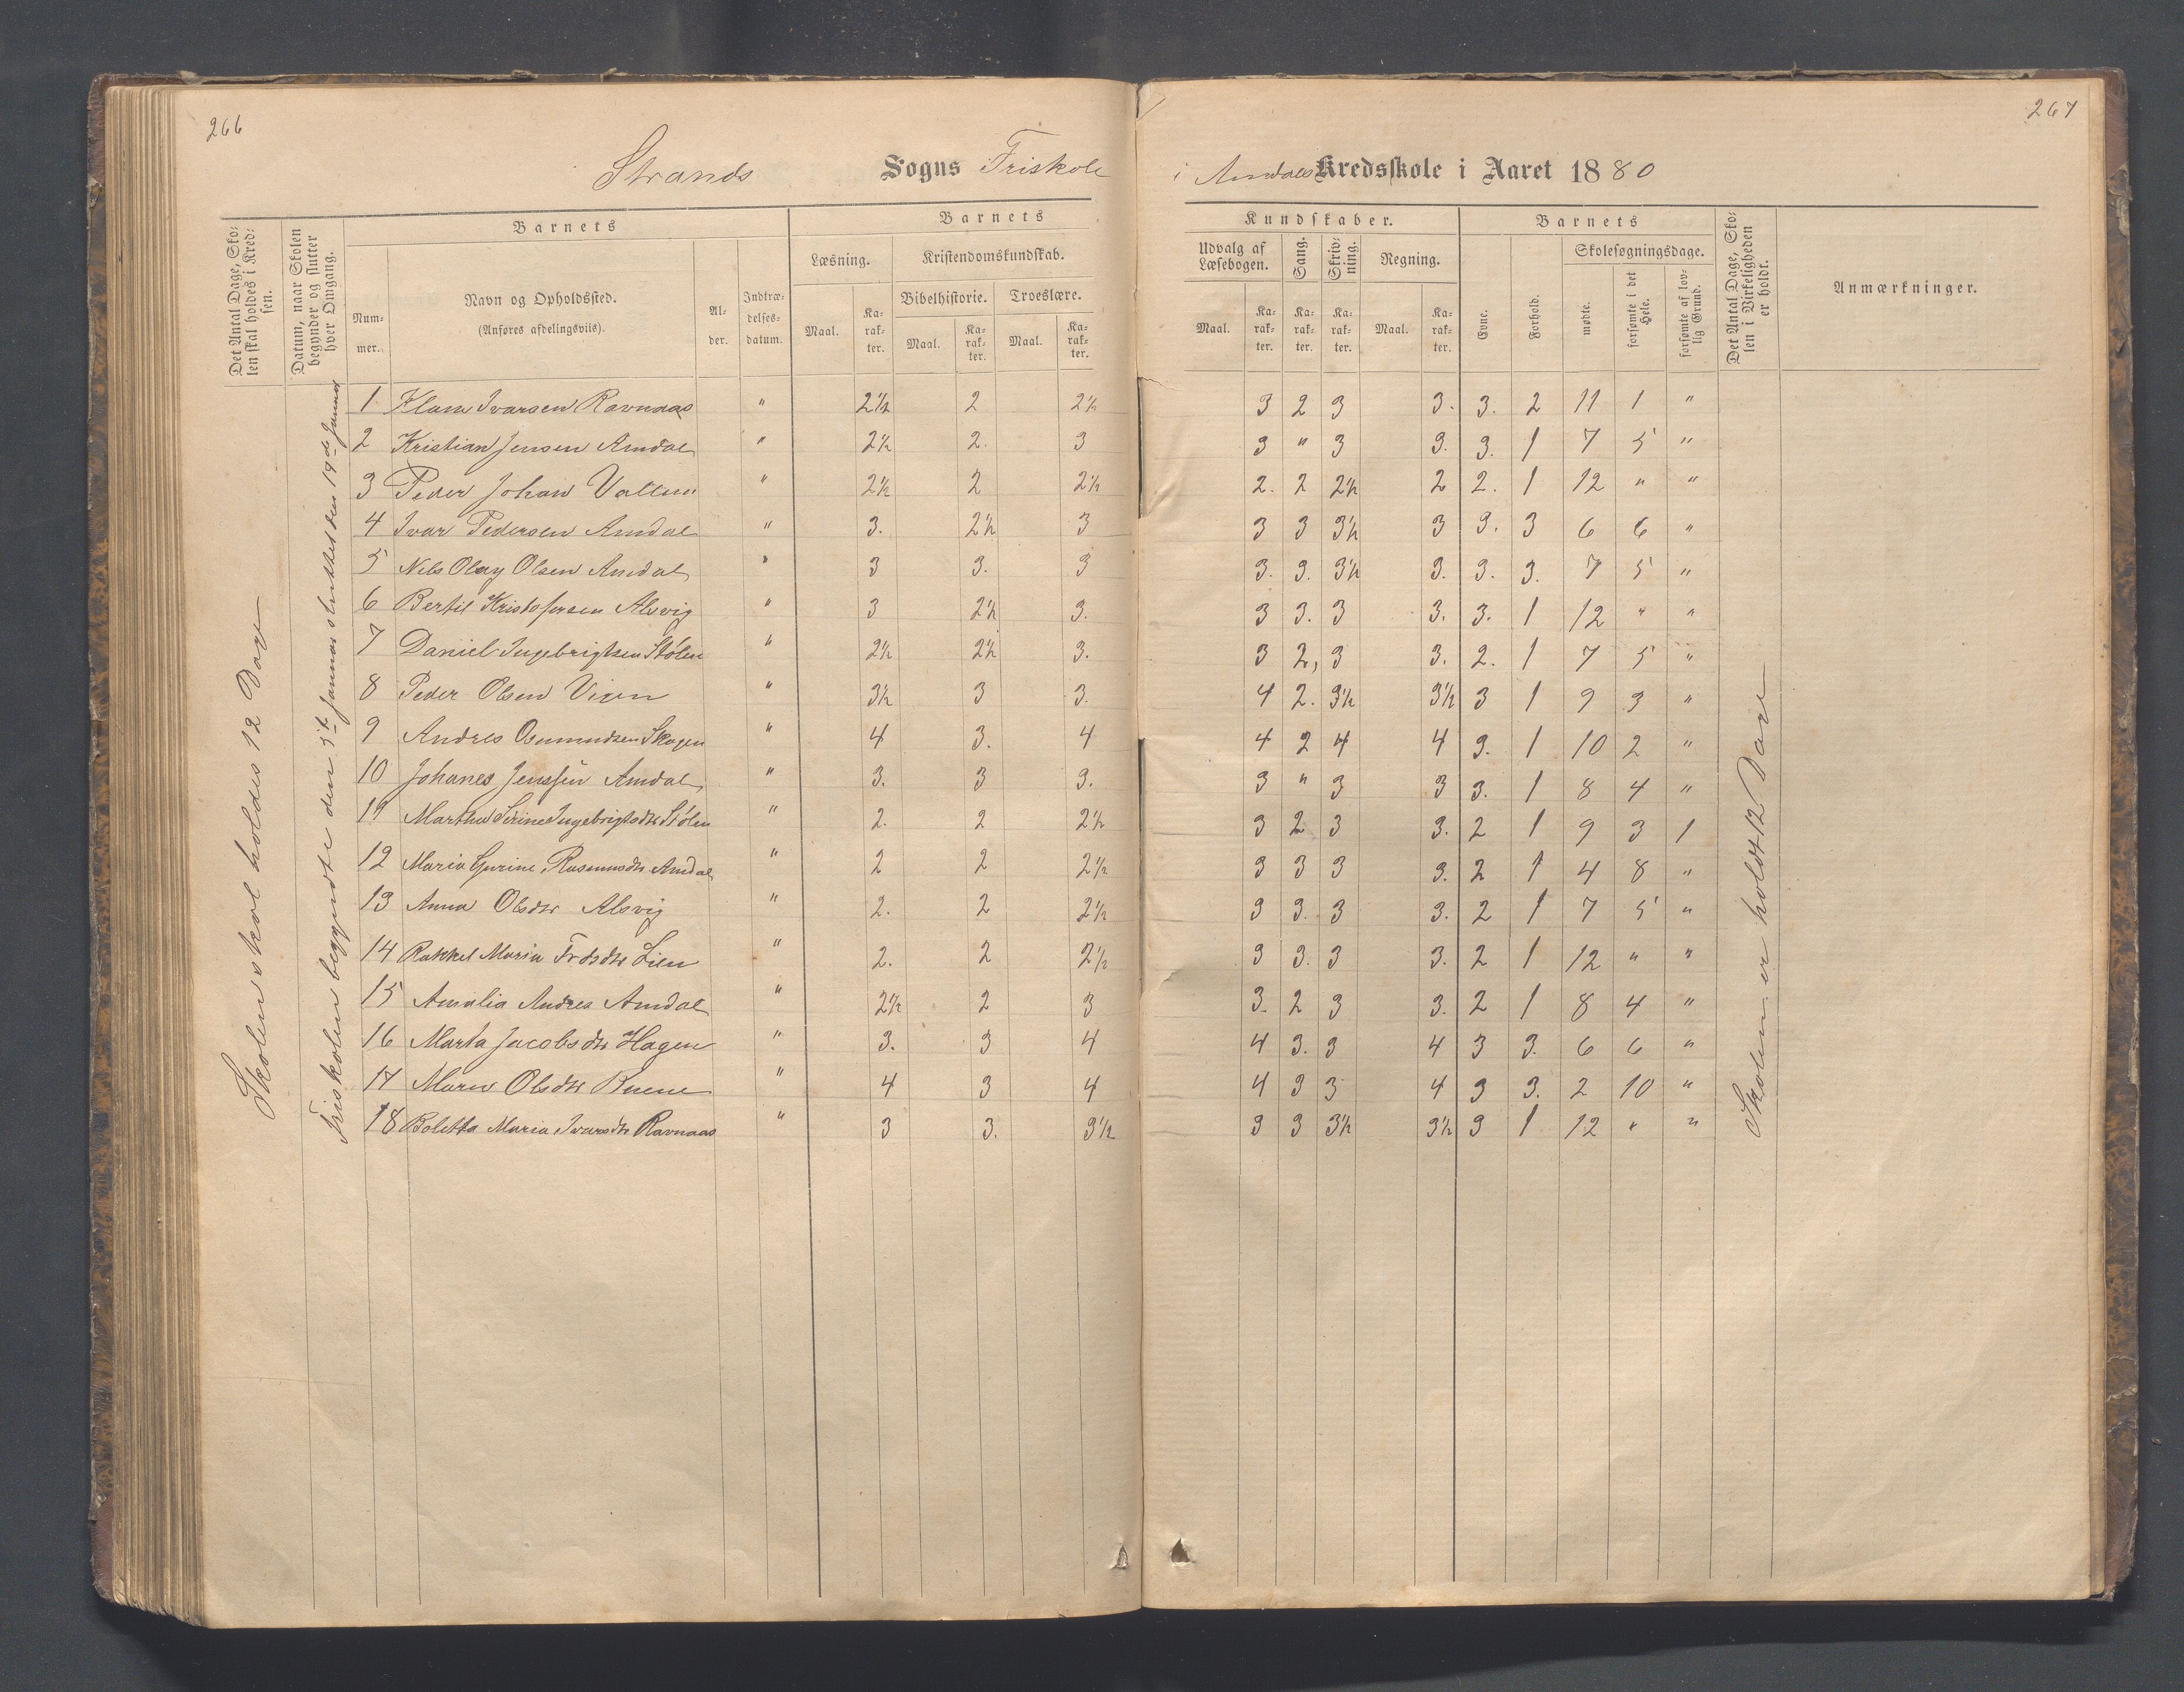 266
267
Strands Sogns Friskole
i Amdals Kredsskole i Aaret 1880
Det Antal Dage, Skolen skal holdes i Kredsen.
Datum, naar Skolen begynder og slutter hver Omgang.
Barnets
Nummer.
Navn og Opholdssted.
(Anføres afdelingsviis).
Alder.
Indtrædelsesdatum.
Barnets
Læsning.
Kristendomskundskab.
Bibelhistorie.
Troeslære.
Maal.
Karakter.
Maal.
Karakter.
Maal.
Karakter.
Kundskaber.
Udvalg af Læsebogen.
Sang.
Skrivning.
Regning.
Maal.
Karakter.
Karakter.
Karakter.
Maal.
Karakter.
Barnets
Evne.
Forhold.
Skolesøgningsdage.
mødte.
forsømte i det Hele.
forsømte af lovlig Grund.
Det Antal Dage, Skolen i Virkeligheden er holdt.
Anmærkninger.
Skolen skal holdes 12 Dage
Friskolen begyndte den 5te Januar sluttet den 19de Januar
1 Ivarsen Ravnaas " 2½ 2 2½ 3 2 3 3. 3. 2 11 1 "
2 Kristian Jensen Amdal " 2½ 2. 3 3 " 3 3. 3. 1 7 5 "
3 Peder Johan " 2½ 2 2½ 2. 2 2½ 2 2. 1 12 " "
4 Ivar Pedersen Amdal " 3. 2½ 3 3 3 3½ 3 3. 3 6 6 "
5 Nils Olay Olsen Amdal " 3 3. 3 3. 3. 3½ 3. 3. 3. 7 5 "
6 Bertil Kristofersen Alsvig " 3 2½ 3. 3 3. 3 3. 3. 1 12 " "
7 Daniel Ingebrigtsen Stølen " 2½ 2½ 3. 3 2, 3 3. 2. 1 7 5 "
8 Peder Olsen Vigen " 3½ 3 3. 4 2. 3½ 3½ 3 1 9 3 "
9 Andres Osmundsen Skogen " 4 3. 4 4 2 4 4 3. 1 10 2 "
10 Johanes Jenssen Amdal " 3. 3 3. 3 " 3 3 3. 1 8 4 "
11 Martha Serine Ingebrigtsdtr Stølen " 2. 2 2½ 3 2 3 3. 2 1 9 3 1
12 Maria Gurine Rasmusdtr Amdal " 2 2 2½ 3 3 3 3. 2 1 4 8 "
13 Anna Olsdtr Alsvig " 2. 2 2½ 3 3. 3 3. 2 1 7 5 "
14 Rakkel Maria Lien " 2. 2 2½ 3 3. 3 3. 2 1 12 " "
15 Amalia Andrea Amdal " 2½ 2 3 3. 2 3 3. 2 1 8 4 "
16 Marta Jacobsdtr Hagen " 3. 3 4 4 3. 3 4 3 3. 6 6 "
17 Maren Olsdtr " 4 3 4 4 3 3 4 3 3. 2 10 "
18 Boletta Maria Ivarsdtr Ravnaas " 3 3. 3½ 3 3 3½ 3½ 3 1 12 " "
Skolen er holdt 12 Dage